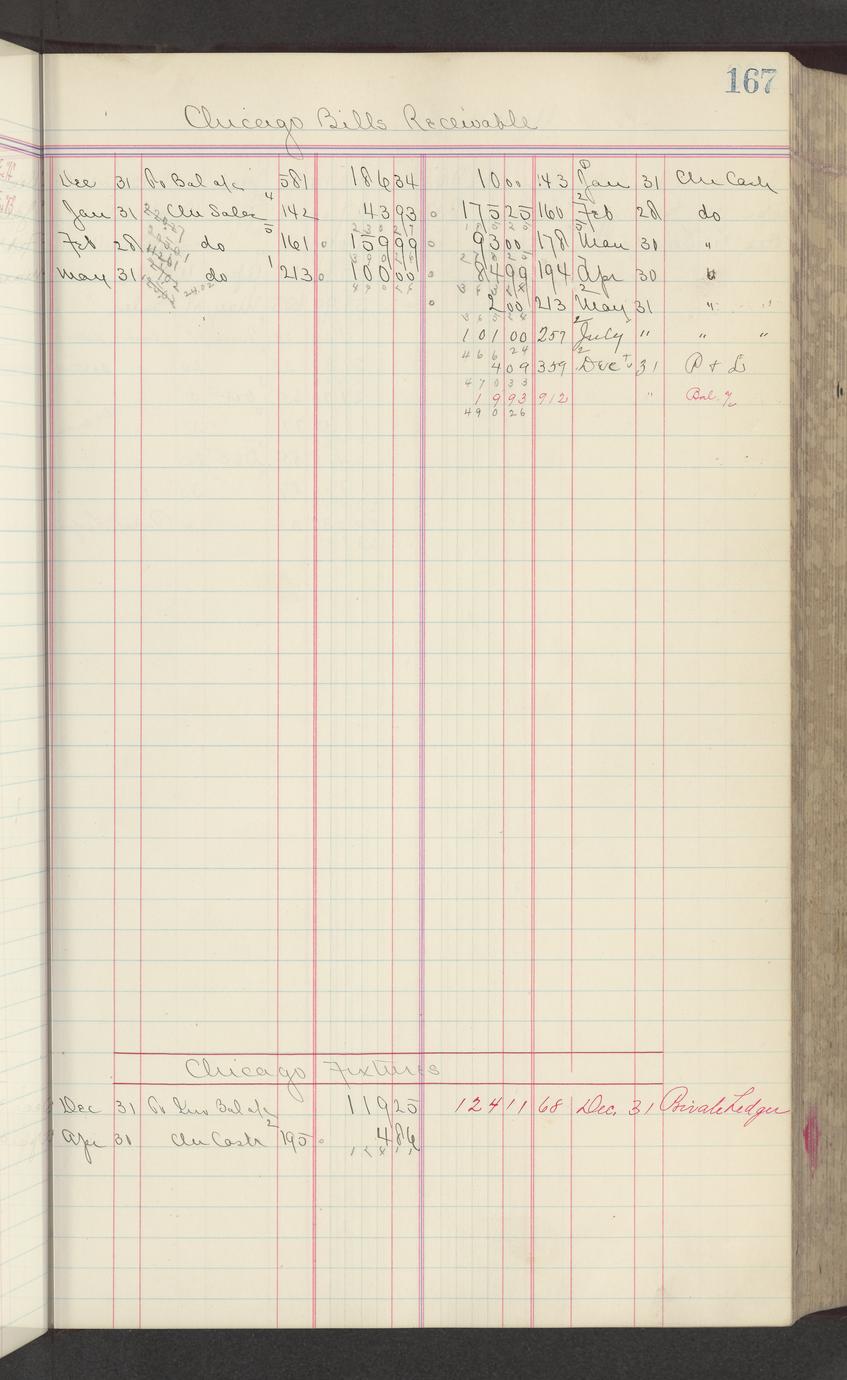 167
Chicago Bills Receivable
Dec 31 To Bal a/c 581 186 34 10 00 143 Jan 31 Chi Cash
Jan 31 Chi Sales 142 43 93 175 25 160 Feb 28 do
Feb 28 do 161 159 99 93 00 178 Mar 30 "
May 31 do 213 100 00 84 99 194 Apr 30 "
2 00 213 May 31 " "
101 00 257 July " " "
466 24
4 09 359 Dec 31 P & L
470 33
19 93 912 " Bal a/c
490 26
Chicago Fixtures
Dec 31 To Inv Bal a/c 119 25 124 11 68 Dec. 31 Private Ledger
Apr 30 Chi Cash 195 4 86